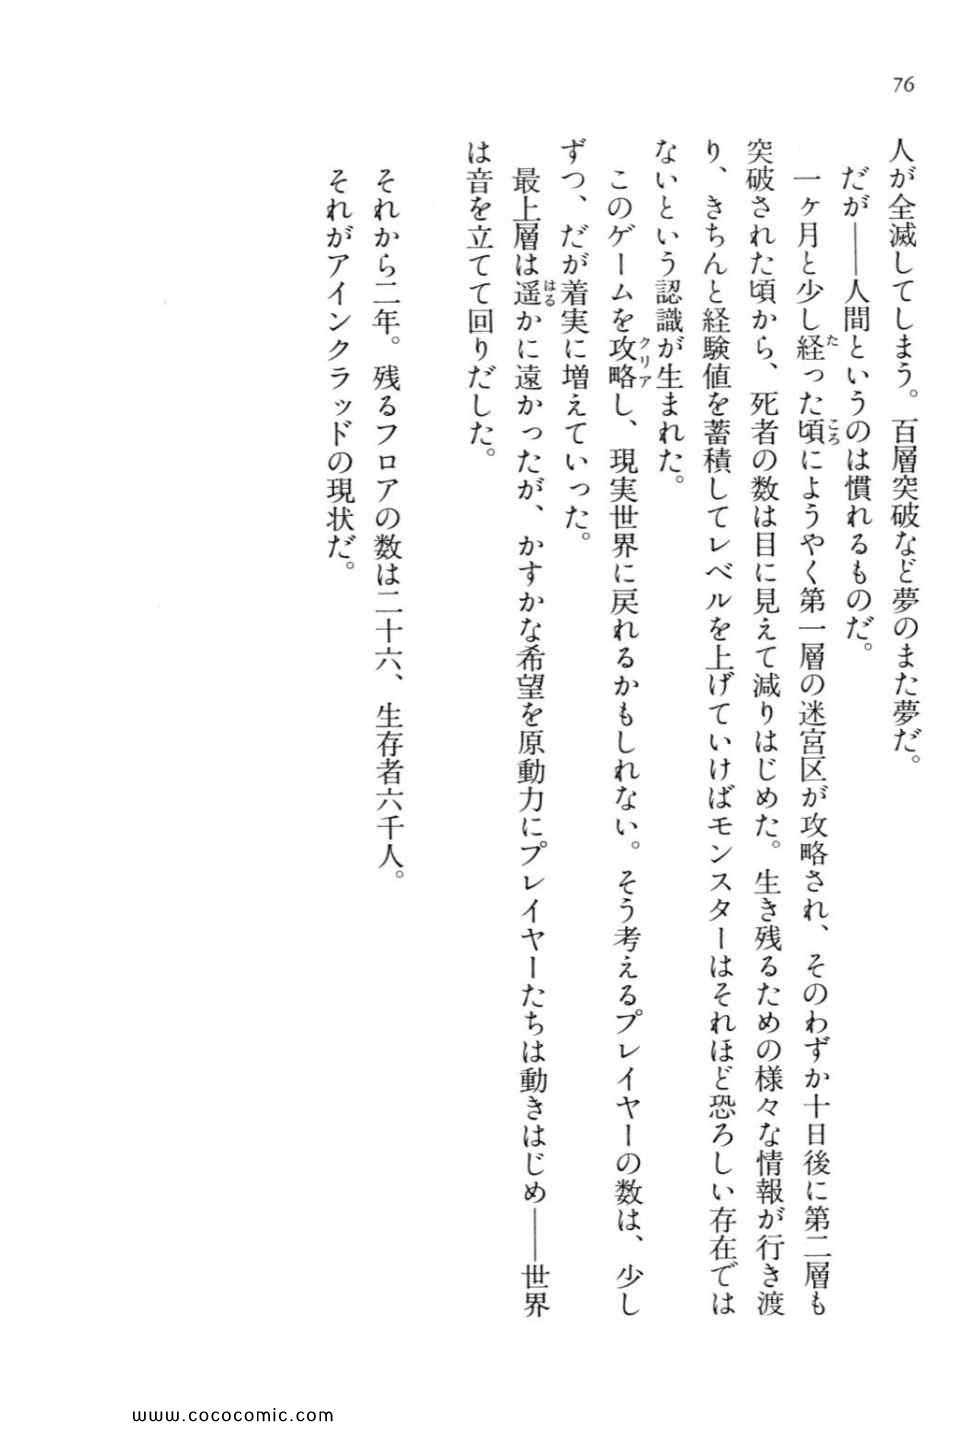 76
人が全滅してしまう。百層突破など夢のまた夢だ。
だが――人間というのは慣れるものだ。
一ヶ月と少し経った頃にようやく第一層の迷宮区が攻略され、そのわずか十日後に第二層も
突破された頃から、死者の数は目に見えて減りはじめた。生き残るための様々な情報が行き渡
り、きちんと経験値を蓄積してレベルを上げていけばモンスターはそれほど恐ろしい存在では
ないという認識が生まれた。
このゲームを攻略し、現実世界に戻れるかもしれない。そう考えるプレイヤーの数は、少し
ずつ、だが着実に増えていった。
最上層は遥かに遠かったが、かすかな希望を原動力にプレイヤーたちは動きはじめ――世界
は音を立てて回りだした。
それから二年。残るフロアの数は二十六、生存者六千人。
それがアインクラッドの現状だ。
た
ころ
クリア
はる
www.cococomic.com